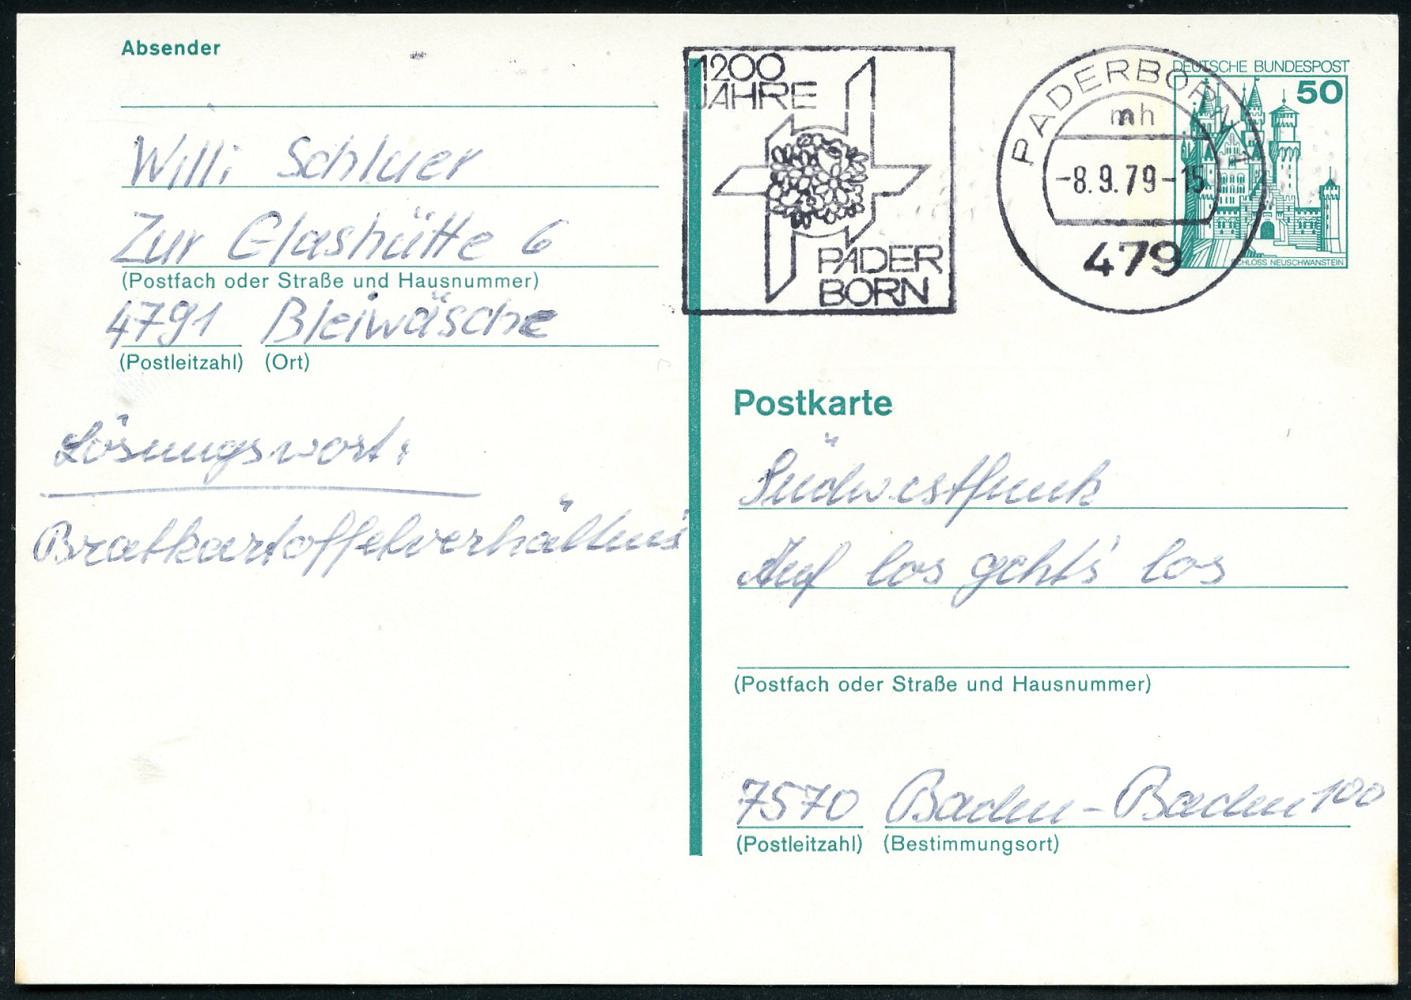 Absender
Willi Schluer
Zur Glashütte 6
(Postfach oder Straße und Hausnummer)
4791 Bleiwäsche
(Postleitzahl) (Ort)
Lösungswort:
Bratkartoffelverhältnis
1200
JAHRE
PADER
BORN
PADERBORN 1
mh
-8.9.79-15
479
DEUTSCHE BUNDESPOST
50
SCHLOSS NEUSCHWANSTEIN
Postkarte
Südwestfunk
Auf los geht's los
(Postfach oder Straße und Hausnummer)
7570 Baden-Baden 100
(Postleitzahl) (Bestimmungsort)